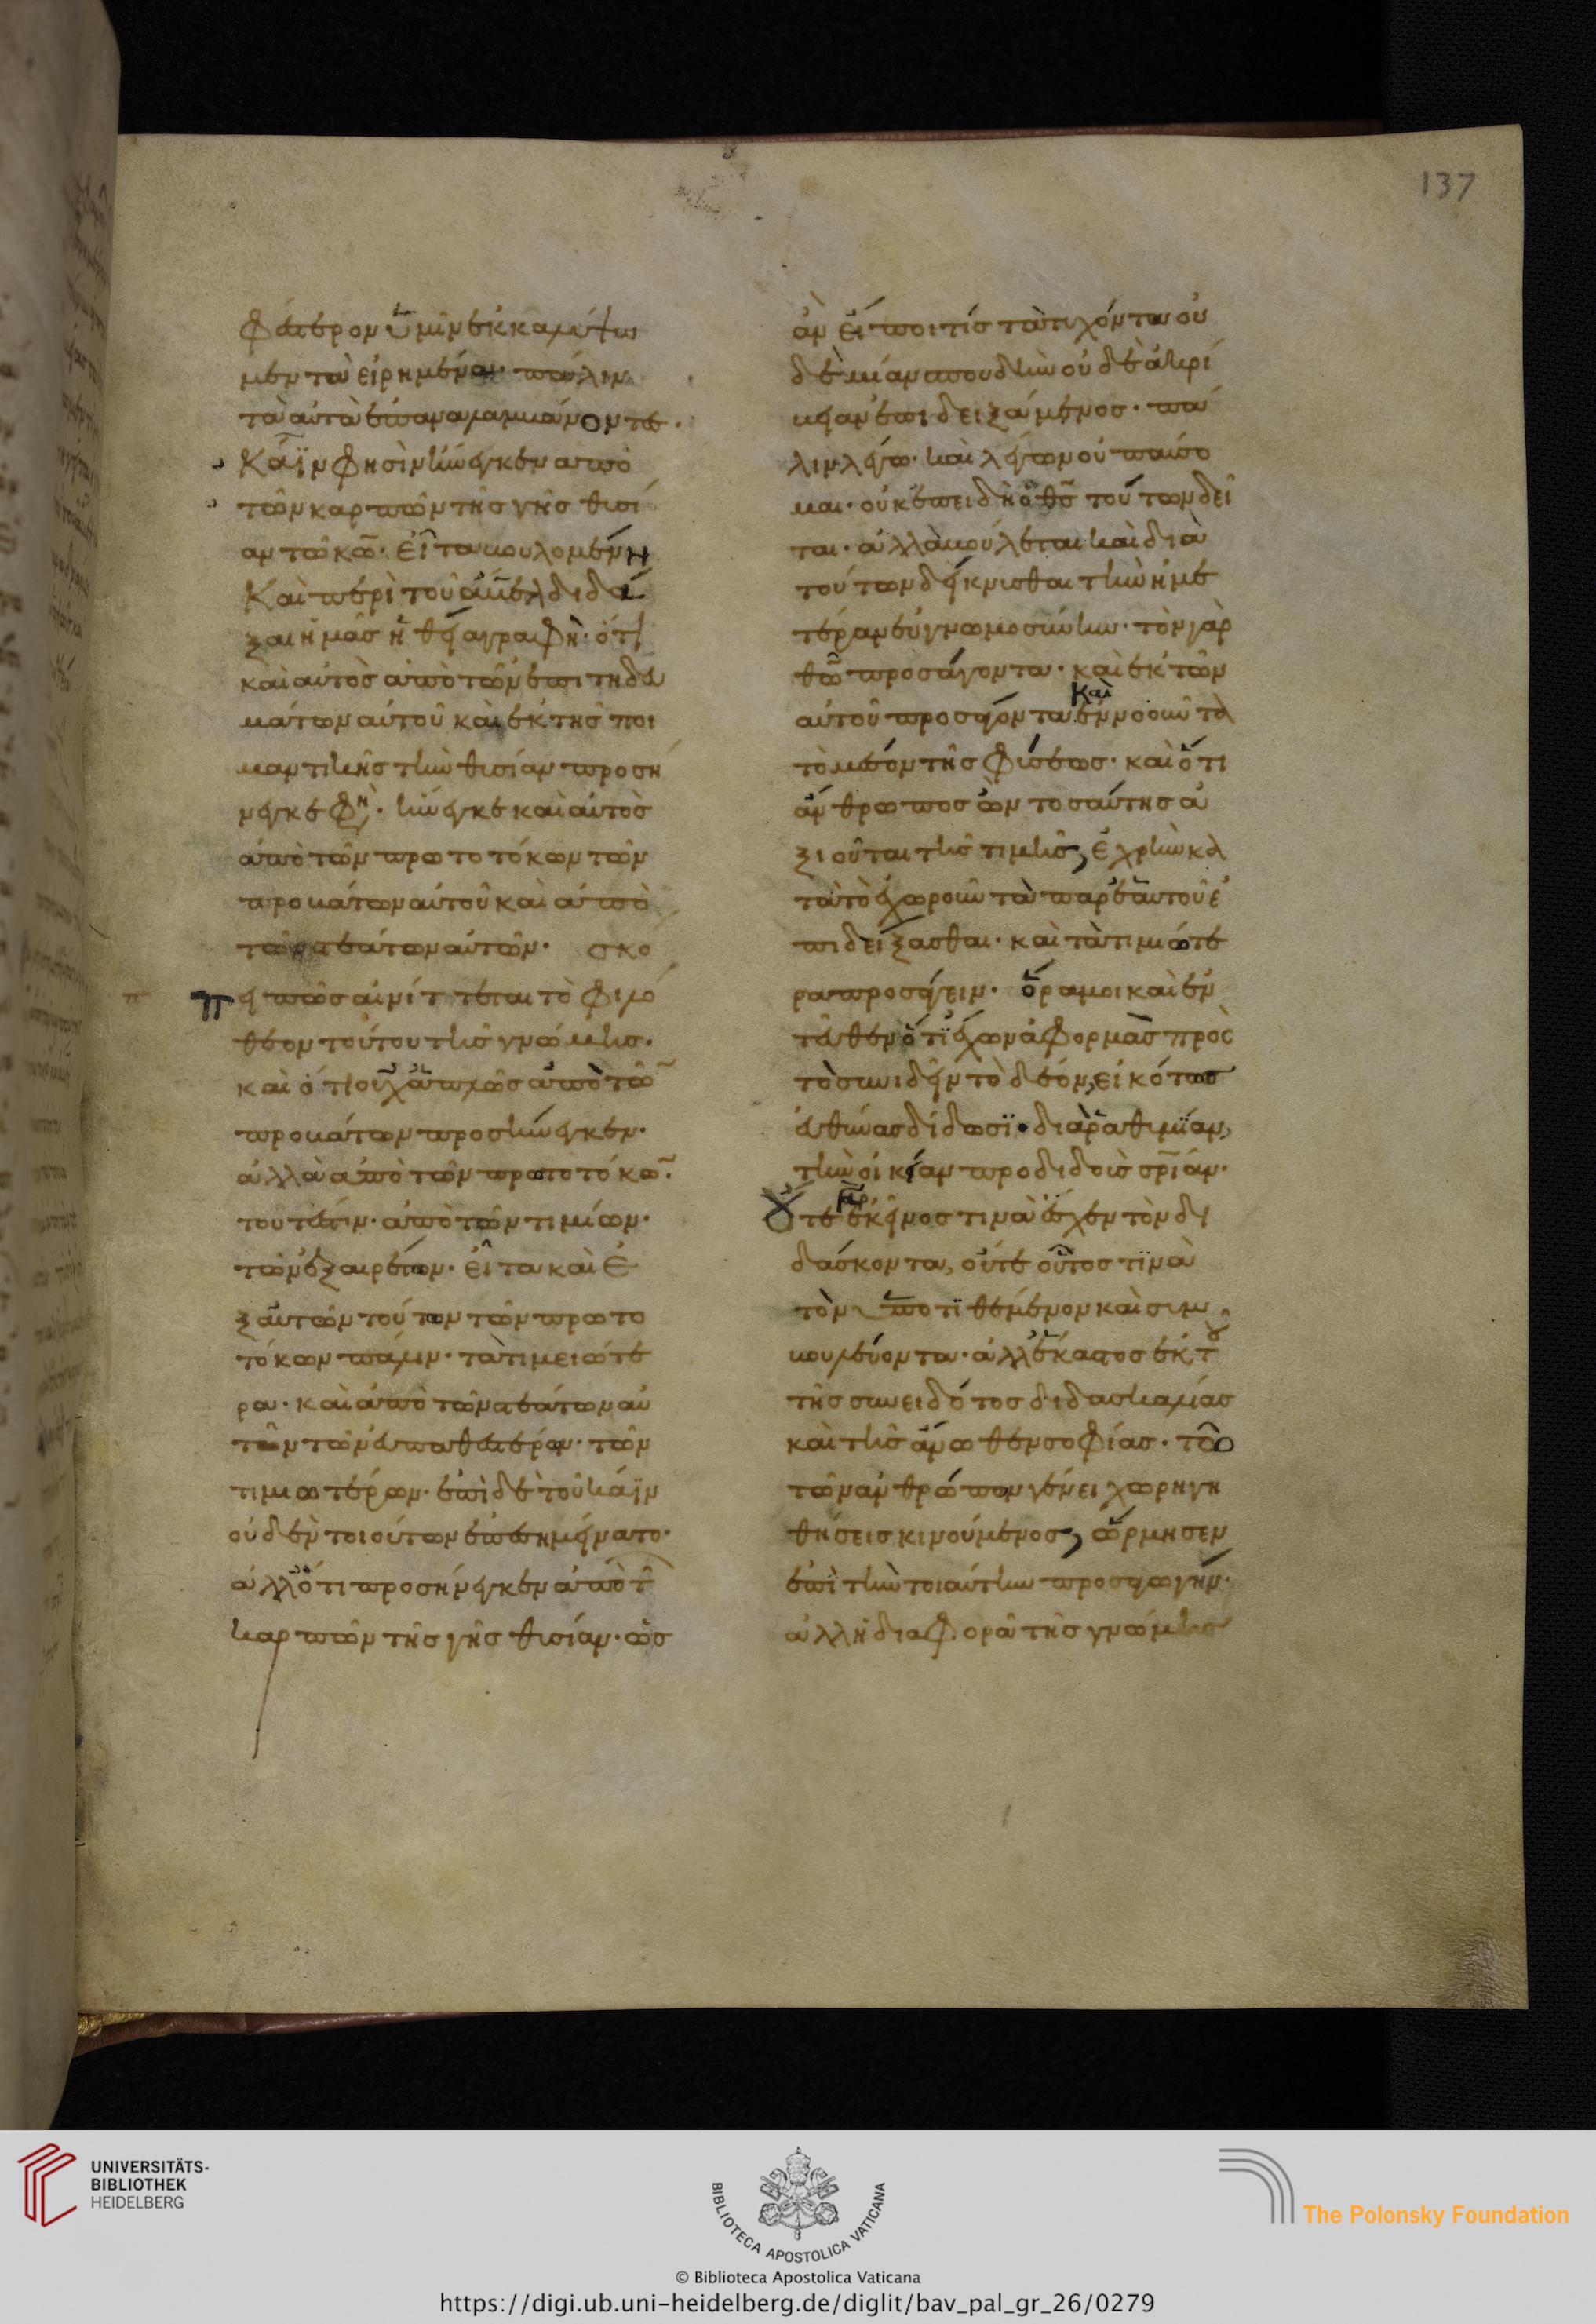 137
φέστερον ὑμῖν ἐκκαλύψω
μεν τὰ εἰρημένα· πάλιν
τὰ αὐτὰ ἐπαναλαμβάνοντες·
Κάϊν φησὶν ἤνεγκεν ἀπὸ
τῶν καρπῶν τῆς γῆς θυσί
αν τῶ κῶ· εἶτα βουλομένη
Καὶ περὶ τοῦ ἄβελ διδά
ξαι ἡμᾶς ἡ θεία γραφὴ· ὅτι
καὶ αὐτὸς ἀπὸ τῶν ἐπιτηδευ
μάτων αὐτοῦ καὶ ἐκ τῆς ποι
μαντικῆς τὴν θυσίαν προσή
νεγκε φη· ἤνεγκε καὶ αὐτὸς
ἀπὸ τῶν πρωτοτόκων τῶν
προβάτων αὐτοῦ καὶ ἀπὸ
τῶν στεάτων αὐτῶν· σκό
πει πῶς αἰνίττεται τὸ φιλό
θεον τούτου τῆς γνώμης·
καὶ ὅτι οὐχ ἁπλῶς ἀπὸ τῶ
προβάτων προσήνεγκεν·
ἀλλὰ ἀπὸ τῶν πρωτοτόκω·
τουτέστιν· ἀπὸ τῶν τιμίων·
τῶν ἐξαιρέτων· εἶτα καὶ ἐ
ξ αὐτῶν τούτων τῶν πρωτο
τόκων πάλιν· τὰ τιμειώτε
ρα· καὶ ἀπὸ τῶν στεάτων αὐ
τῶν τῶν εὐπαθεστέρων· τῶν
τιμιωτέρων· ἐπὶ δὲ τοῦ κάϊν
οὐδὲν τοιούτων ἐπεσημήνατο·
ἀλλ' ὅτι προσήνεγκεν ἀπὸ τ
καρπῶν τῆς γῆς θυσίαν· ὡς
ἀν εἴποι τίς τὰ τυχόντα οὐ
δὲ μίαν σπουδὴν οὐδὲ ἀκρί
βειαν ἐπιδειξάμενος· πά
λιν λέγω· καὶ λέγων οὐ παύσο
μαι· οὐκ ἐπειδὴ ὁ θς τούτων δεῖ
ται· ἀλλὰ βούλεται καὶ διὰ
τούτων δείκνυσθαι τὴν ἡμε
τέραν εὐγνωμοσύνην· τὸν γὰρ
θῶ προσάγοντα· καὶ ἐκ τῶν
αὐτοῦ προσάγοντα καὶ ἐννοοῦντα
τὸ μέσον τῆς φύσεως· καὶ ὅτι
ἄνθρωπος ὢν τοσαύτης ἀ
ξιοῦται τῆς τιμῆς, ἐχρῆν κα
τὰ τὸ ἐγχωροῦν τὰ παρ' ἑαυτοῦ ἐ
πιδείξασθαι· καὶ τὰ τιμιώτε
ρα προσάγειν· ὅρα μοι καὶ ἐν
τεῦθεν ὅτι ἔχων ἀφορμὰς πρὸς
τὸ συνιδεῖν τὸ δέον, εἰκότως
εὐθύνας δίδωσϊ· διὰ ραθυμΐαν,
τὴν οἰκίαν προδιδοὺς σρίαν·
οὔτε γὰρ ἐκεῖνος τινὰ ἔσχεν τὸν δι
δάσκοντα, οὔτε οὗτος τϊνὰ
τὸν ὑποτϊθέμενον καὶ συμ
βουλεύοντα· ἀλλ' ἕκαστος ἐκ τοῦ
τῆς συνειδότος διδασκαλίας
καὶ τῆς ἄνωθεν σοφίας· τῶ
τῶν ἀνθρώπων γένει χωρηγη
θήσεις κινούμενος, ὥρμησεν
ἐπὶ τὴν τοιαύτην προσαγωγήν·
ἀλλ' ἡ διαφορὰ τῆς γνώμης
UNIVERSITÄTS-
BIBLIOTHEK
HEIDELBERG
BIBLIOTECA APOSTOLICA VATICANA
The Polonsky Foundation
© Biblioteca Apostolica Vaticana
https://digi.ub.uni-heidelberg.de/diglit/bav_pal_gr_26/0279